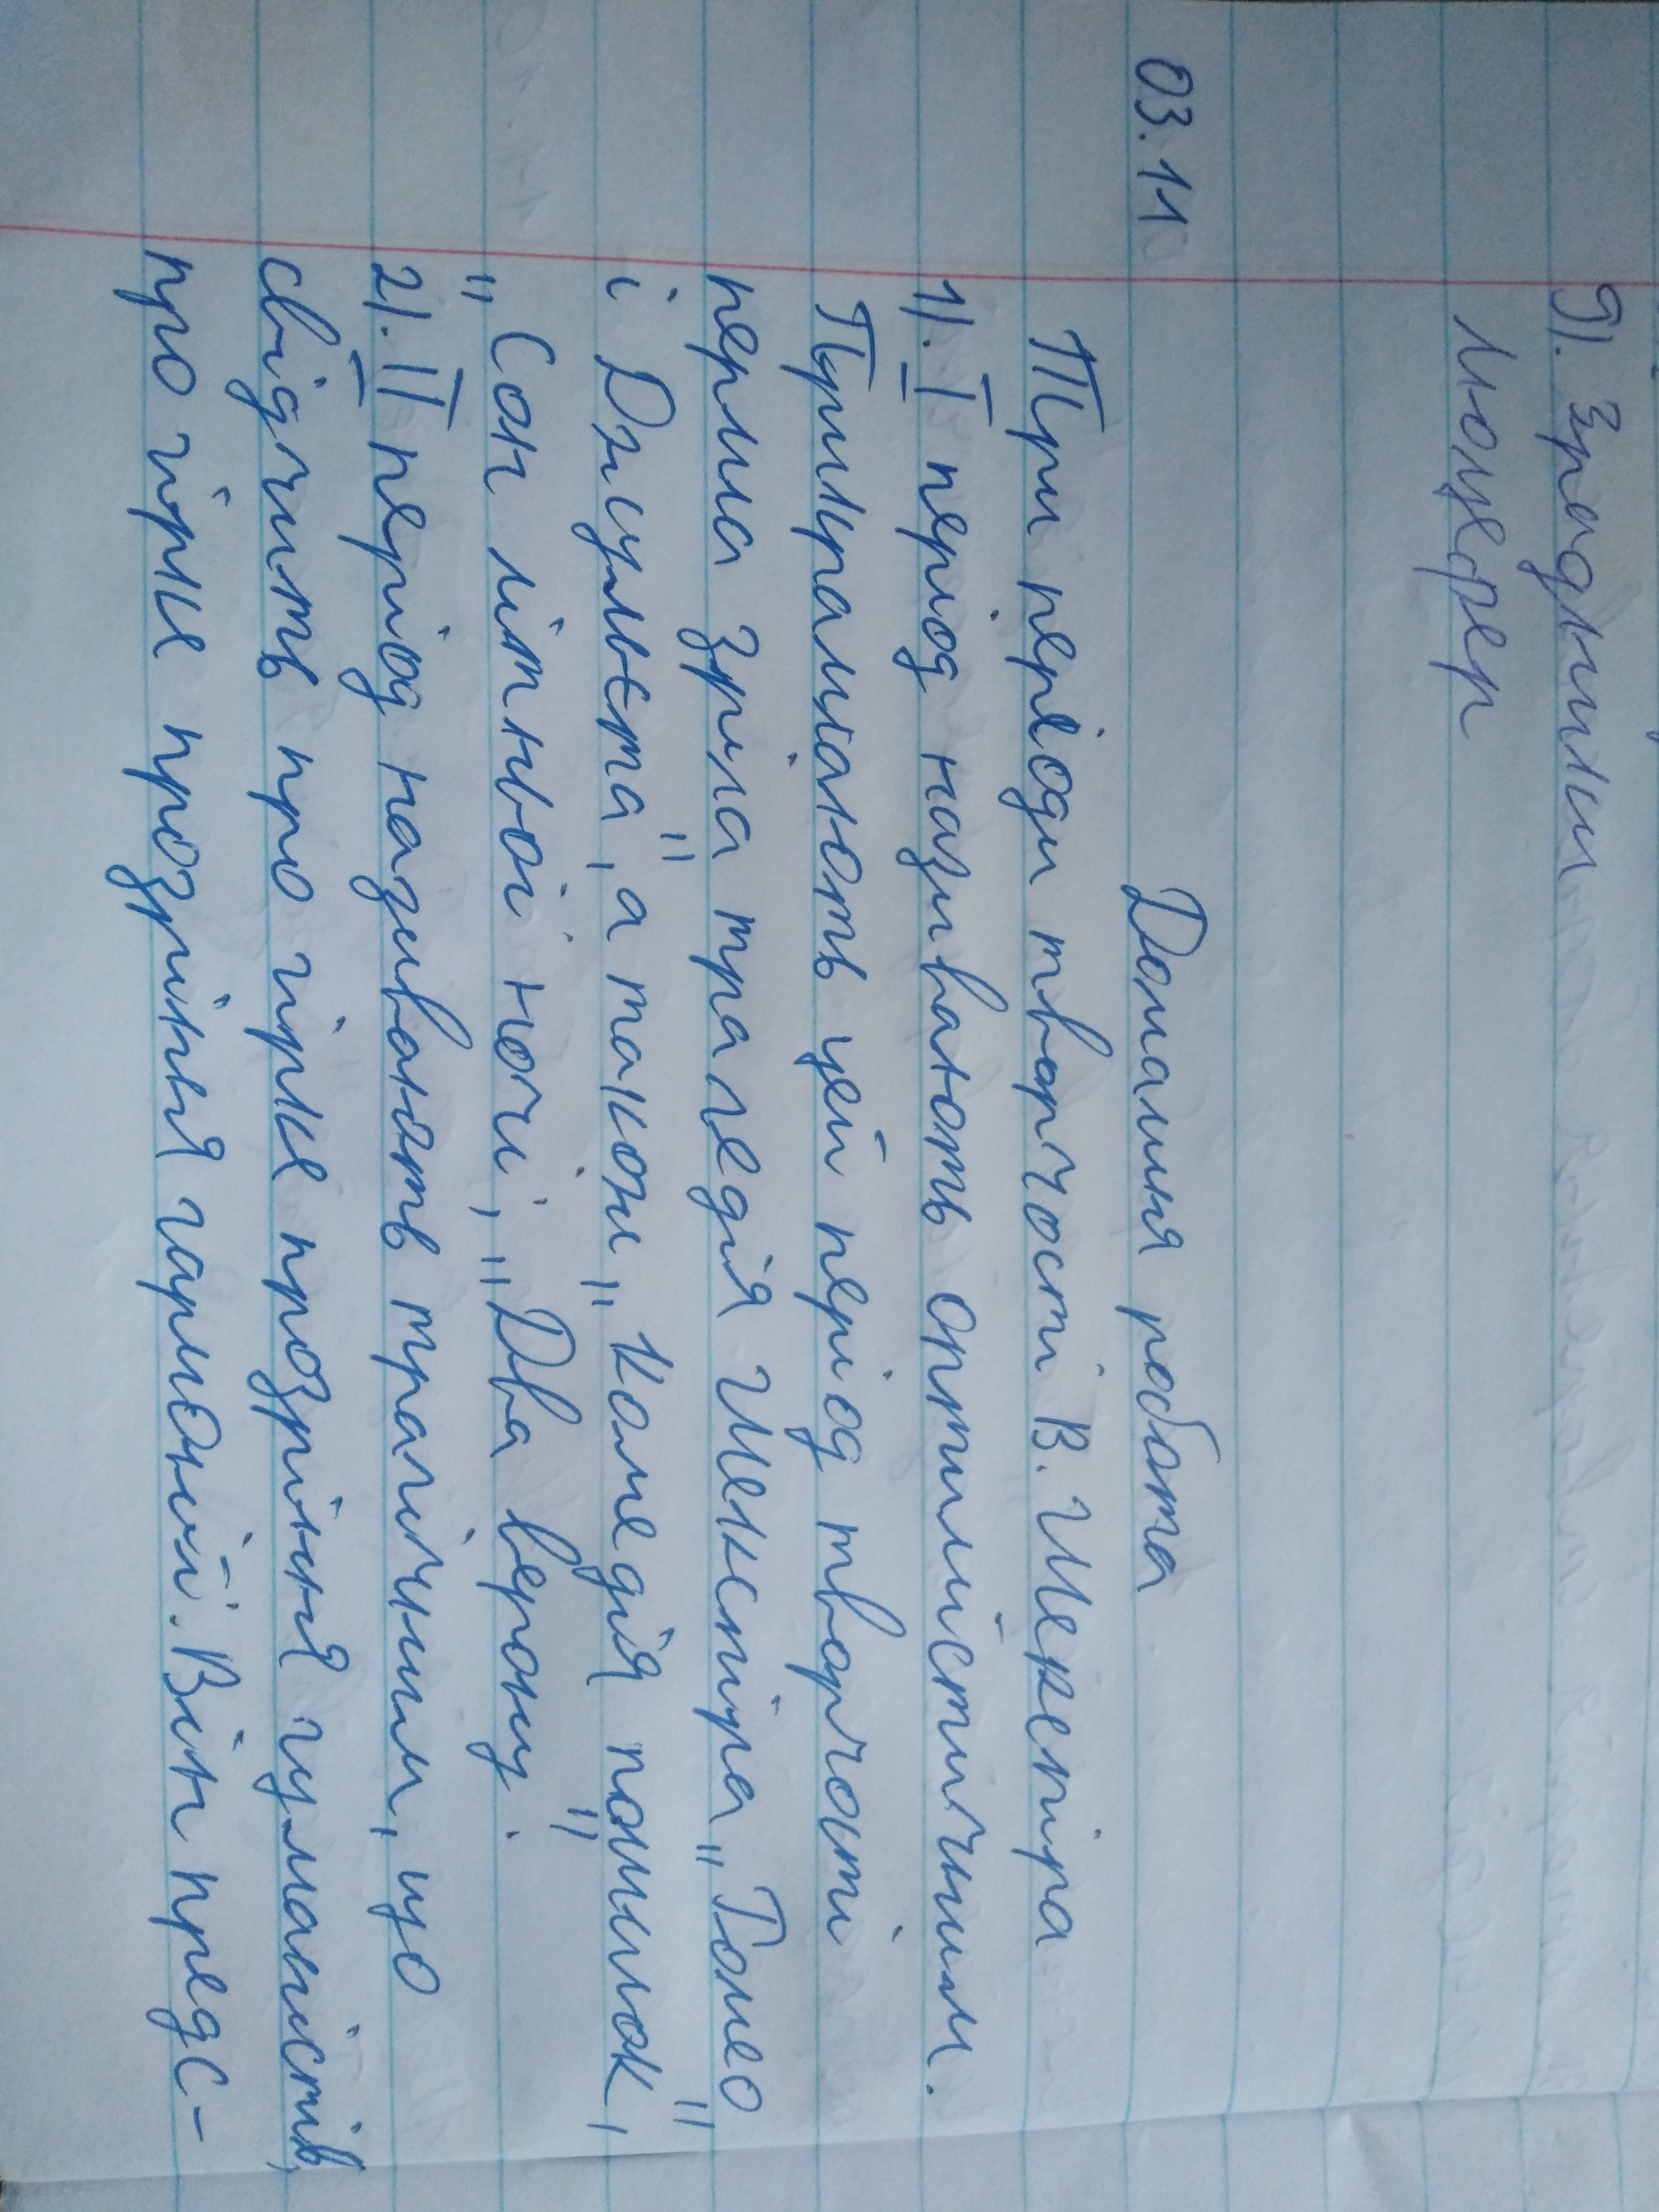 9). Зрадники
Люцефер
03.11 Домашня робота
Три періоди творчості В. Шекспіра
1). I період називають оптимістичним.
Прикрашають цей період творчості
перша зріла трагедія Шекспіра „Ромео
і Джульєта", а також „Комедія помилок",
„Сон літньої ночі", „Два веронці".
2). II період називають трагічним, що
свідчить про гірке прозріння гуманістів,
про гірке прозріння гармонії. Він предс-